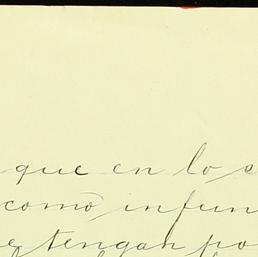 que en lo s
como infun
tengan po